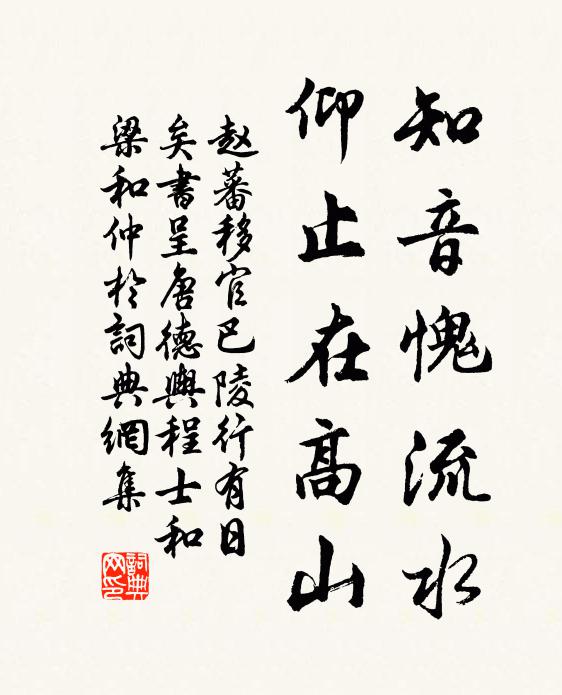 知音愧流水
仰止在高山
赵蕃移官巴陵行有日
矣書呈唐德輿程士和
梁和仲於詞典網集
詞典网印